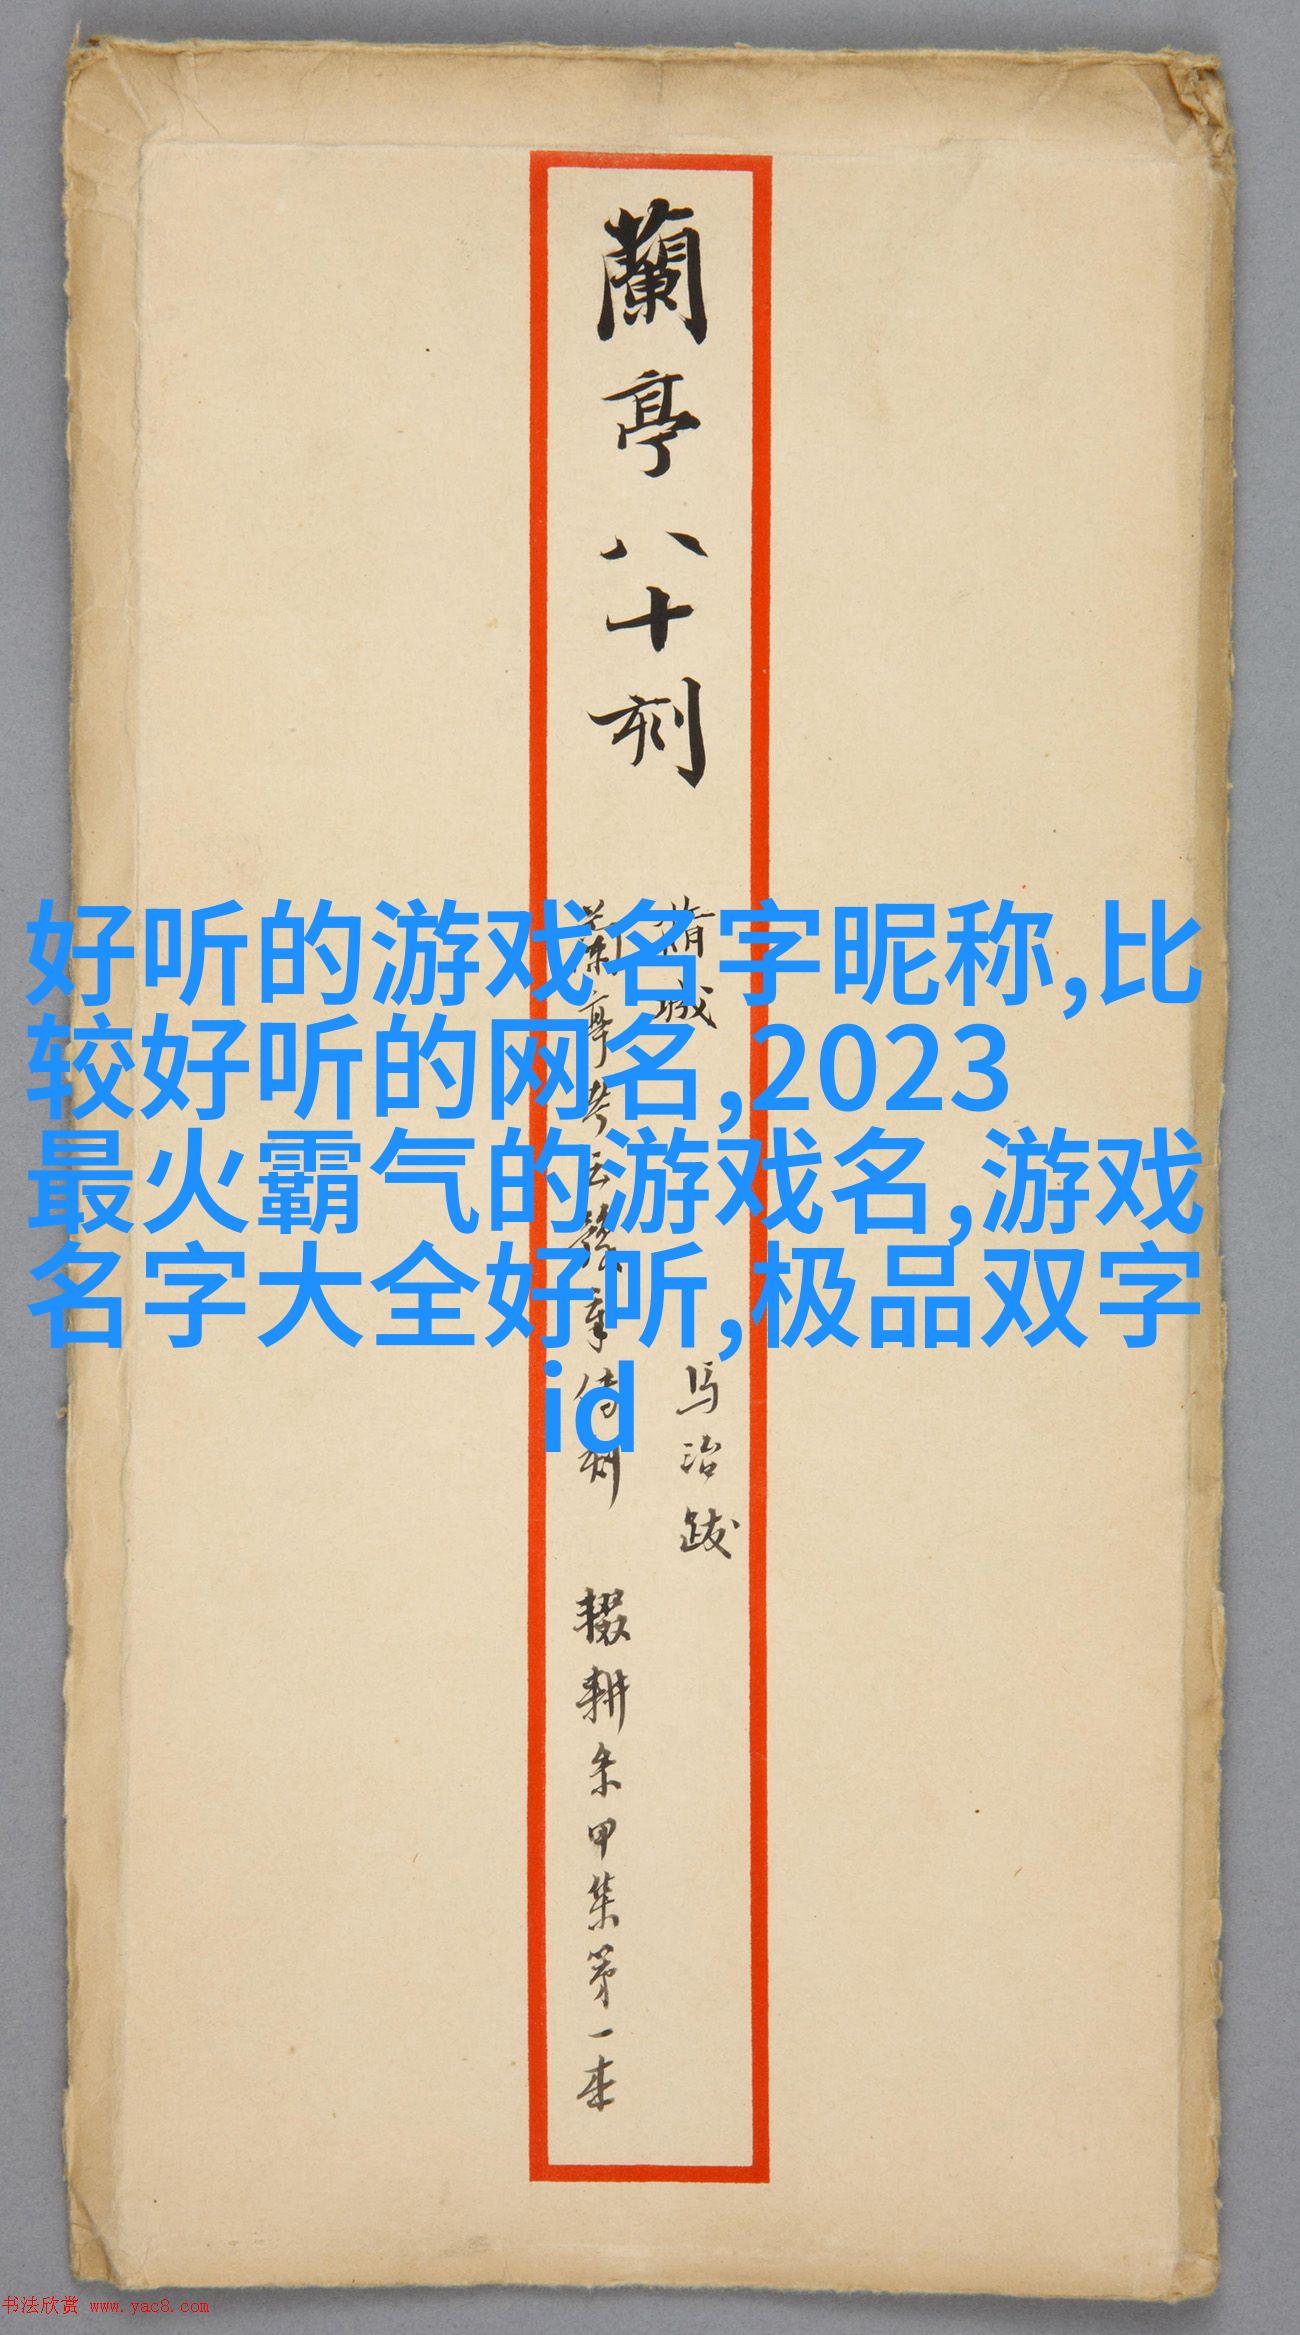 蘭亭八十刻
馬治跋
蘭亭考云發章傳刻
輟耕朱甲集第一本
好听的游戏名字昵称,比
较好听的网名,2023
最火霸气的游戏名,游戏
名字大全好听,极品双字
id
书法欣赏 www.yac8.com